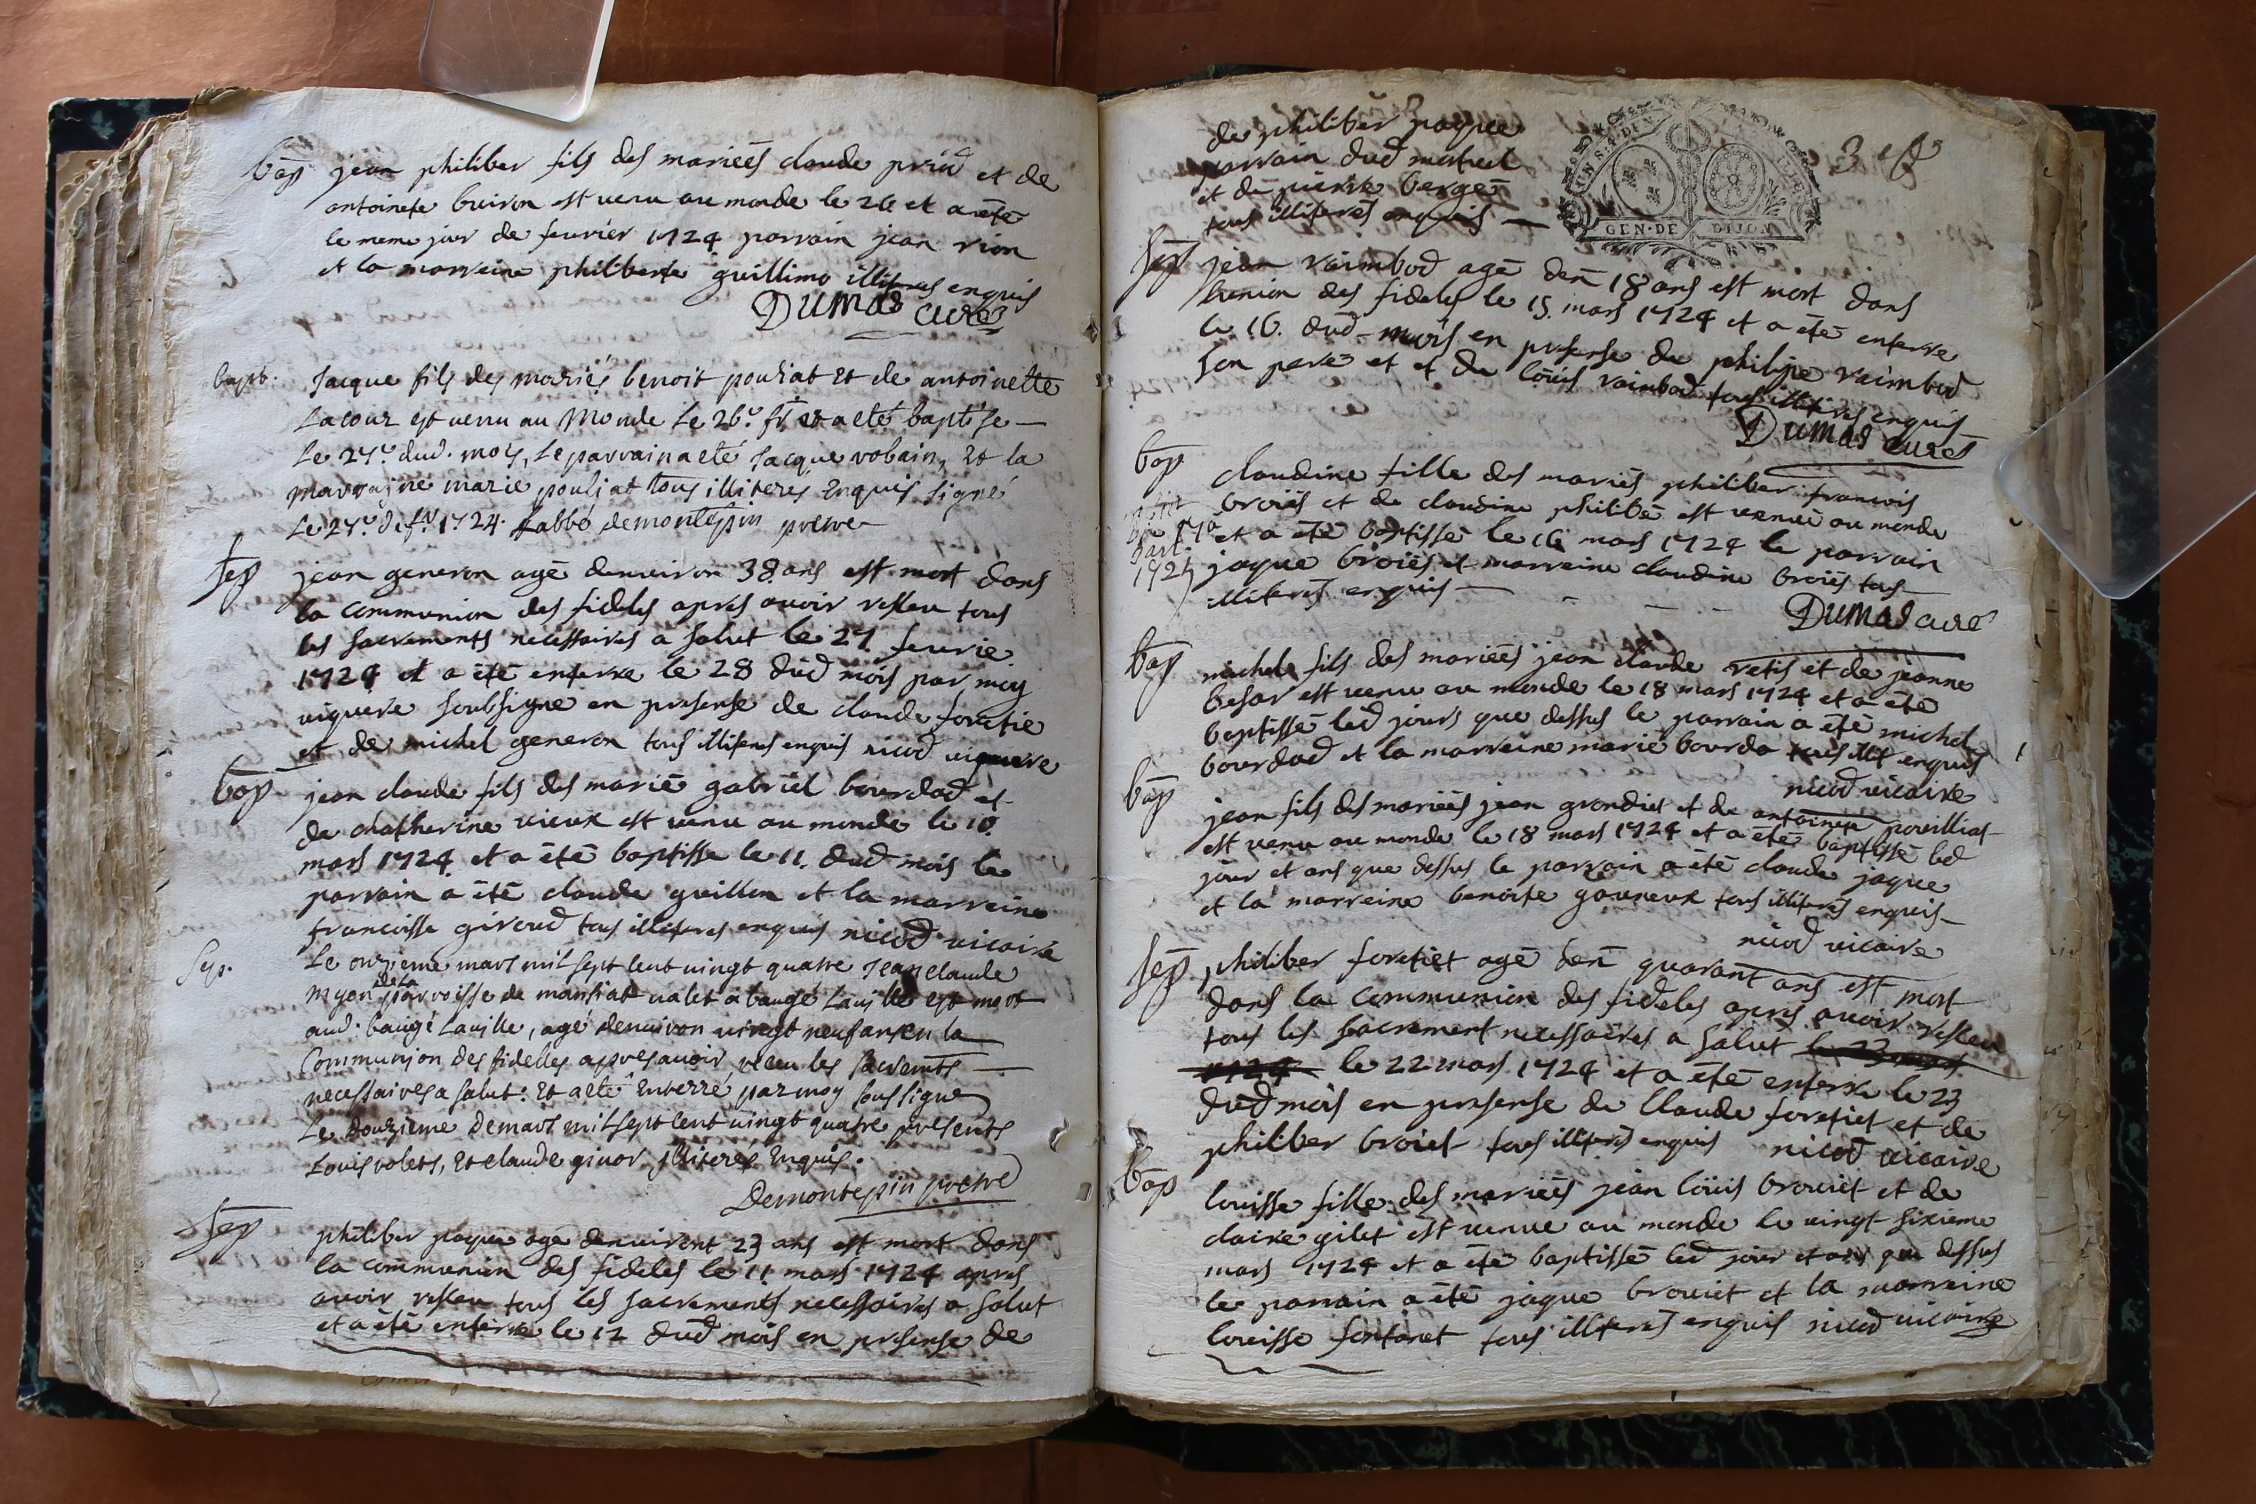 bap
jean philiber fils des marieés claude prüd et de
antoinete buiron est venu au monde le 26 et a été
le meme jour de feurier 1724 parrain jean rion
et la marreine philiberte guillimo illiteres enquis
Dumas curé
bapt.
Jacque fils des mariés benoit pouliat et de antoinette
Lacour est venu au Monde Le 26.e fr. et a eté baptise
Le 27.e dud. mois, Le parrain a eté Jacque robain, et la
marrayne marie pouliat tous illiteres Enquis signé
Le 27.e de fr. 1724. L'abbé demontespin pretre
sep
jean generon agé denuiron 38 ans est mort dans
la communion des fideles apres auoir resseu tous
les sacrements necessaires a salut le 27 feurie
1724 et a été enterre le 28 dud mois par moy
viquere soubsigne en presense de claude foretie
et de michel generon tous illiteres enquis nicod viquere
bap
jean claude fils des marié gabriel bourdod et
de chatherine vieux est venu au monde le 10
mars 1724 et a été baptisse le 11. dud mois le
parrain a été claude guillon et la marreine
francoisse giroud tous illiteres enquis nicod vicaire
Sep.
Le onzieme mars mil sept cent vingt quatre Jean claude
myon de la parroisse de mansiat valet a baugé Lauille est mort
aud. baugé Lauille, agé denuiron vingt neuf ans en la
Communion des fidelles apres auoir receu les sacremts
necessaires a salut: Et a eté Enterré par moy soussigné
Le douzieme de mars mil sept cent vingt quatre presents
Louis volets, et claude givor illiteres Enquis.
Demontespin pretre
sep
philiber paque agé denuiront 23 ans est mort dans
la communion des fideles le 11 mars 1724 apres
auoir resseu tous les sacrements necessaires a salut
et a été enterre le 12 dud mois en presense de
de philiber paque
parrain dud
et de pierre berger
tous illiterés enquis
GEN·DE DIJON
3
sep
jean raimbod agé den 18 ans est mort dans
lunion des fideles le 15. mars 1724 et a été enterre
le 16. dud mois en presense de philipe raimbod
son pere et et de loüis raimbod tous illiteres enquis
Dumas curé
bap
claudine fille des mariés philiber francois
broiës et de claudine philibé est venuë au monde
et a été baptissé le 16 mars 1724 le parrain
jaque broiës et marreine claudine broiës tous
illiterés enquis
Dumas curé
bap
michel fils des marieés jean claude retis et de jeanne
besar est venu au monde le 18 mars 1724 et a été
baptissé led jours que dessus le parrain a été michel
bourdod et la marreine marie bourdo tous illit enquis
nicod vicaire
bap
jean fils des marieés jean grandiet et de antoinete pouilliat
est venu au monde le 18 mars 1724 et a été baptissé led
jour et ans que dessus le parrain a été claude jaque
et la marreine benoite gouneux tous illiterés enquis
nicod vicaire
sep
philiber foretiet agé den quarant ans est mort
dans la communion des fideles apres auoir resseu
tous les sacrement necessaires a salut le 23 mars
1724 le 22 mars 1724 et a été enterre le 23
dud mois en presense de Claude foretiet et de
philiber broiet tous illiterés enquis nicod vicaire
bap
louisse fille des marieés jean loüis brouiet et de
claire gilet est venue au monde le vingt sixieme
mars 1724 et a été baptissé led jour et ans que dessus
le parrain a été jaque brouiet et la marreine
louisse fontanet tous illiterés enquis nicod vicaire